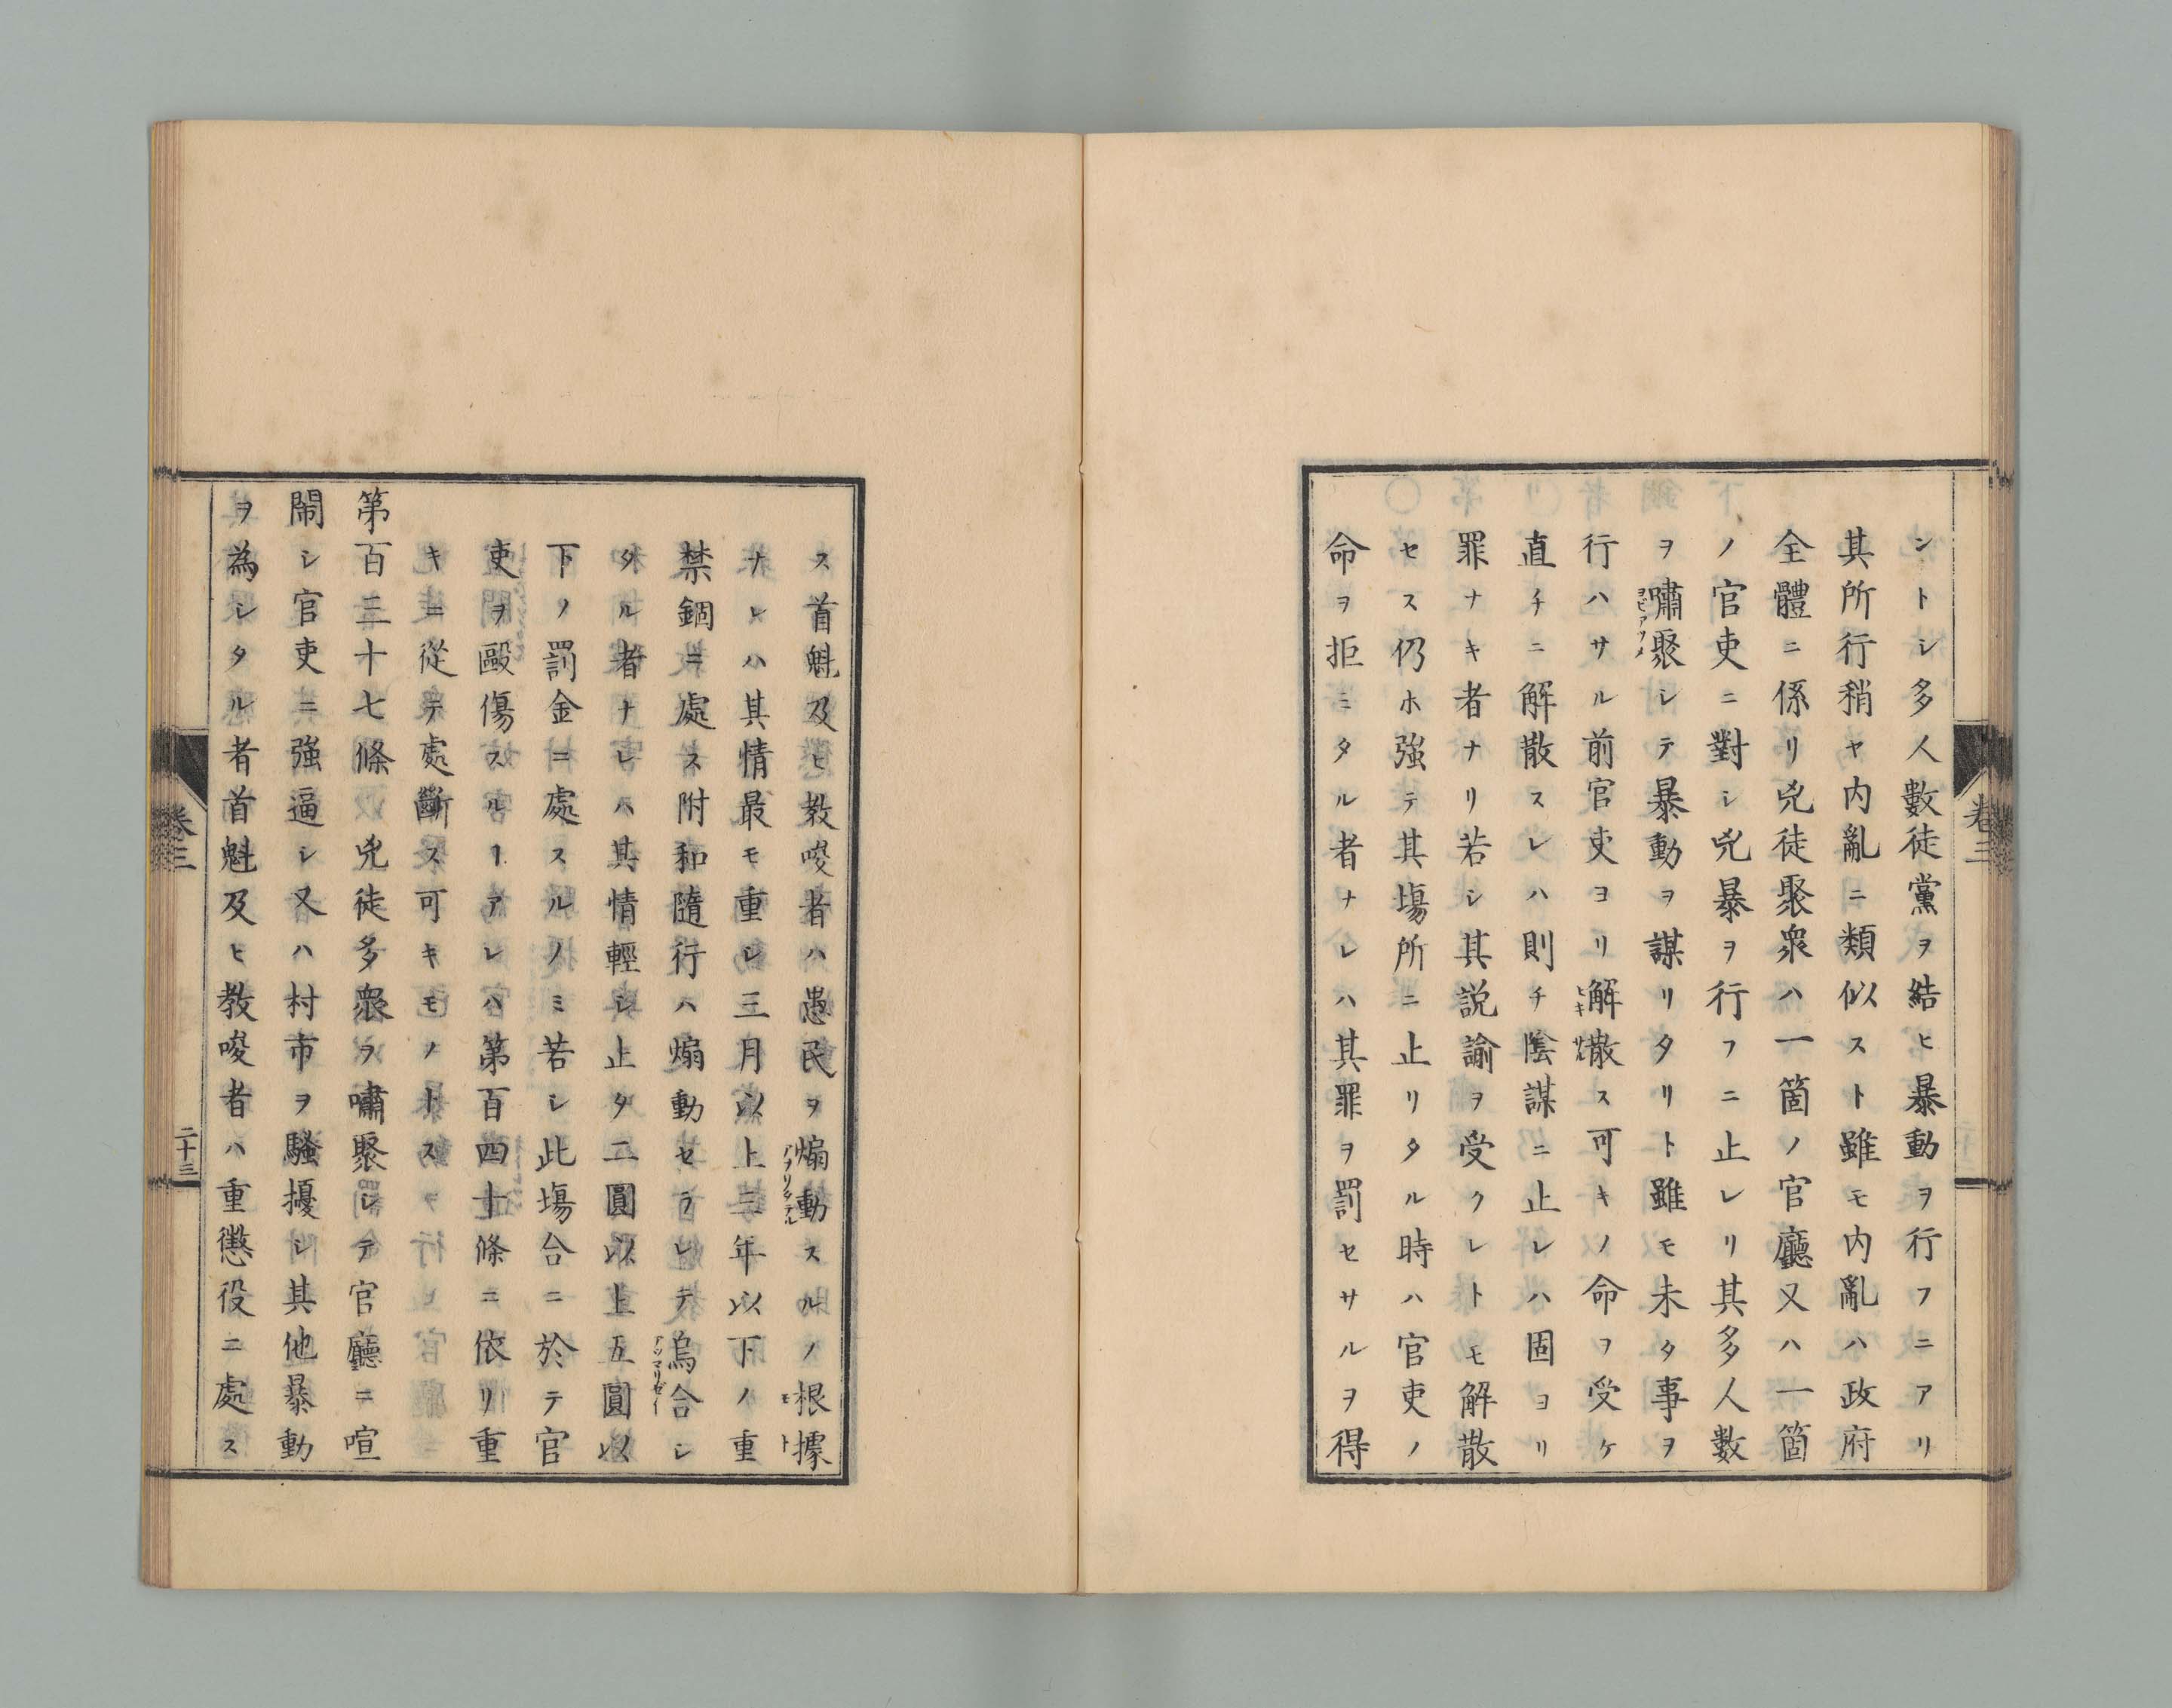 ントシ多人數徒黨ヲ結ヒ暴動ヲ行フニアリ
其所行稍ヤ内亂ニ類似スト雖モ内亂ハ政府
全體ニ係リ兇徒聚衆ハ一箇ノ官廳又ハ一箇
ノ官吏ニ對シ兇暴ヲ行フニ止レリ其多人數
ヲ嘯聚シテ暴動ヲ謀リタリト雖モ未タ事ヲ
行ハサル前官吏ヨリ解散ス可キノ命ヲ受ケ
直チニ解散スレハ則チ陰謀ニ止レハ固ヨリ
罪ナキ者ナリ若シ其説諭ヲ受クレトモ解散
セス仍ホ強テ其塲所ニ止リタル時ハ官吏ノ
命ヲ拒ミタル者ナレハ其罪ヲ罰セサルヲ得
卷三
ス首魁及ヒ教唆者ハ愚民ヲ煽動スルノ根據
ナレハ其情最モ重シ三月以上三年以下ノ重
禁錮ニ處ス附和隨行ハ煽動セラレテ烏合シ
タル者ナレハ其情輕シ止タ二圓以上五圓以
下ノ罰金ニ處スルノミ若シ此塲合ニ於テ官
吏ヲ毆傷スルヿアレハ第百四十條ニ依リ重
キニ從テ處斷ス可キモノトス
第百三十七條　兇徒多衆ヲ嘯聚シテ官廳ニ喧
鬧シ官吏ニ強逼シ又ハ村市ヲ騷擾シ其他暴動
ヲ為シタル者首魁及ヒ教唆者ハ重懲役ニ處ス
卷三
二十三